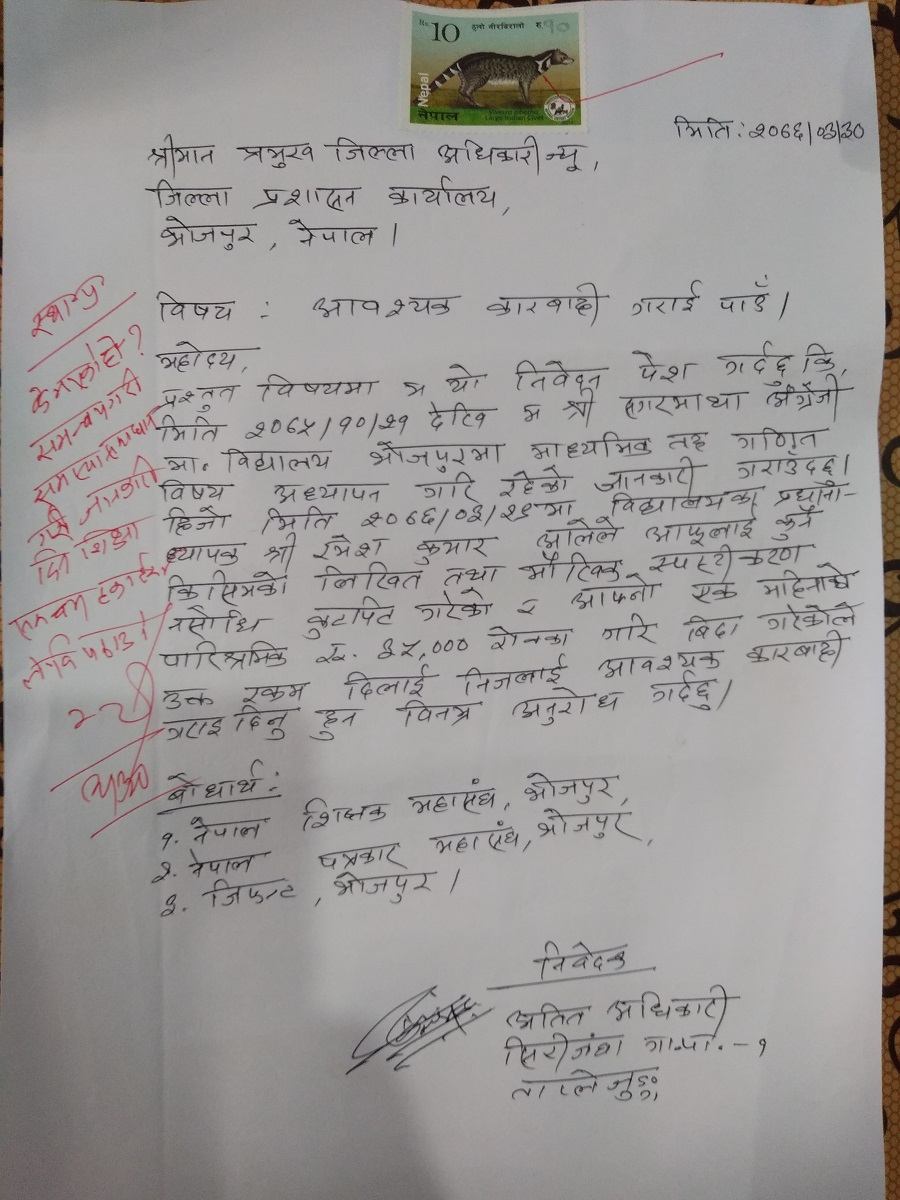 Rs. 10 ठूलो नीरबिरालो रु १०
Nepal
नेपाल
Large Indian Civet
मिति : २०७६/०३/३०
श्रीमान प्रमुख जिल्ला अधिकारी ज्यू,
जिल्ला प्रशासन कार्यालय,
भोजपुर, नेपाल ।
विषय : आवश्यक कारबाही गराई पाउँ ।
महोदय,
प्रस्तुत विषयमा म यो निवेदन पेश गर्दछु कि,
मिति २०७५/१०/२१ देखि म श्री सगरमाथा अंग्रेजी
मा. विद्यालय भोजपुरमा माध्यमिक तह गणित
विषय अध्यापन गरि रहेको जानकारी गराउँदछु ।
हिजो मिति २०७६/०३/२९ मा विद्यालयका प्रधाना-
ध्यापक श्री रमेश कुमार ओलिले आफूलाई कुनै
किसिमको लिखित तथा मौखिक स्पस्टीकरण
नसोधि कुटपिट गरेको र आफ्नो एक महिनाको
पारिश्रमिक रु. ३५,000 रोक्का गरि बिदा गरेकोले
उक्त रकम दिलाई निजलाई आवश्यक कारबाही
गराइ दिनु हुन विनम्र अनुरोध गर्दछु ।
बोधार्थ :
१. नेपाल शिक्षक महासंघ, भोजपुर,
२. नेपाल पत्रकार महासंघ, भोजपुर,
३. जिफन्ट, भोजपुर ।
के भएको हो ?
समन्वय गरी
समस्या समाधान
गरी जानकारी
दिन शिक्षा
लेखि पठाउने
निवेदक
अतित अधिकारी
सिरीजंघा गा.पा. - १
ताप्लेजुङ्ग